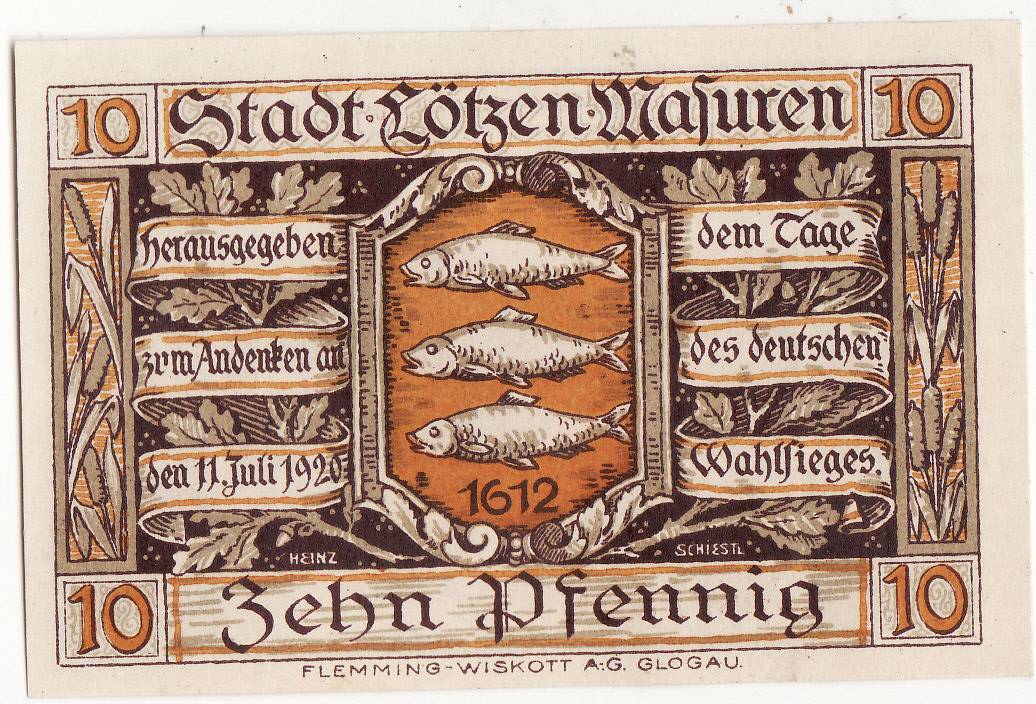 10 Stadt·Lötzen·Masuren 10
herausgegeben
zum Andenken an
den 11. Juli 1920
dem Tage
des deutschen
Wahlsieges.
1612
HEINZ SCHIESTL
10 Zehn Pfennig 10
FLEMMING-WISKOTT A.-G. GLOGAU.